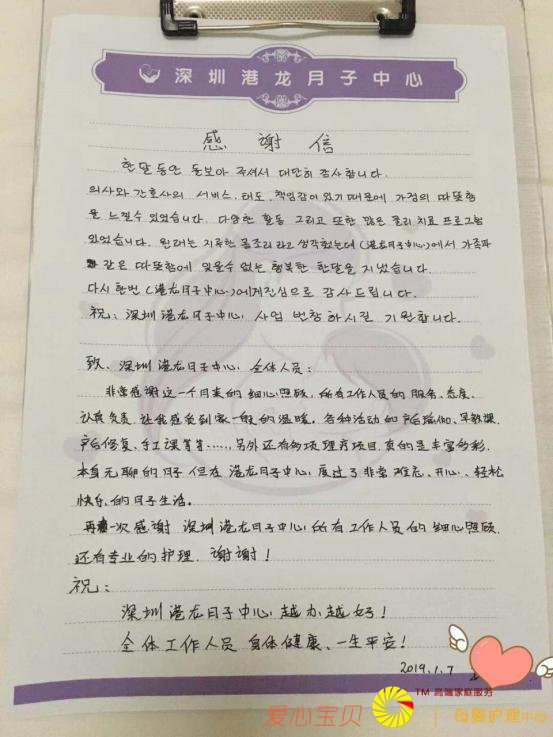 深圳港龙月子中心
感谢信
한달동안 돌보아 주셔서 대단히 감사합니다.
의사와 간호사의 서비스, 태도, 책임감이 있기때문에 가정의 따뜻함
을 느낄수 있었습니다. 다양한 활동 그리고 또한 많은 물리치료 프로그램
있었습니다. 원래는 지루한 몸조리라고 생각했는데 (港龙月子中心)에서 가족과
같은 따뜻함에 잊을수 없는 행복한 한달을 지냈습니다.
다시 한번 (港龙月子中心)에게진심으로 감사드립니다.
祝：深圳港龙月子中心 사업 번창하시길 기원합니다.
致、深圳港龙月子中心 全体人员：
非常感谢这一个月来的细心照顾，所有工作人员的服务、态度、
认真负责 让我感受到家一般的温暖。各种活动如产后瑜伽、早教课、
产后修复、手工课等等……，另外还有多项理疗项目，真的是丰富多彩，
本身无聊的月子 但在港龙月子中心 度过了非常难忘、开心、轻松
快乐的月子生活。
再一次感谢 深圳港龙月子中心所有工作人员的细心照顾，
还有专业的护理，谢谢！
祝：
深圳港龙月子中心 越办越好！
全体工作人员 身体健康、一生平安！
2019.1.7
爱心宝贝 TM 高端家庭服务 | 母婴护理中心